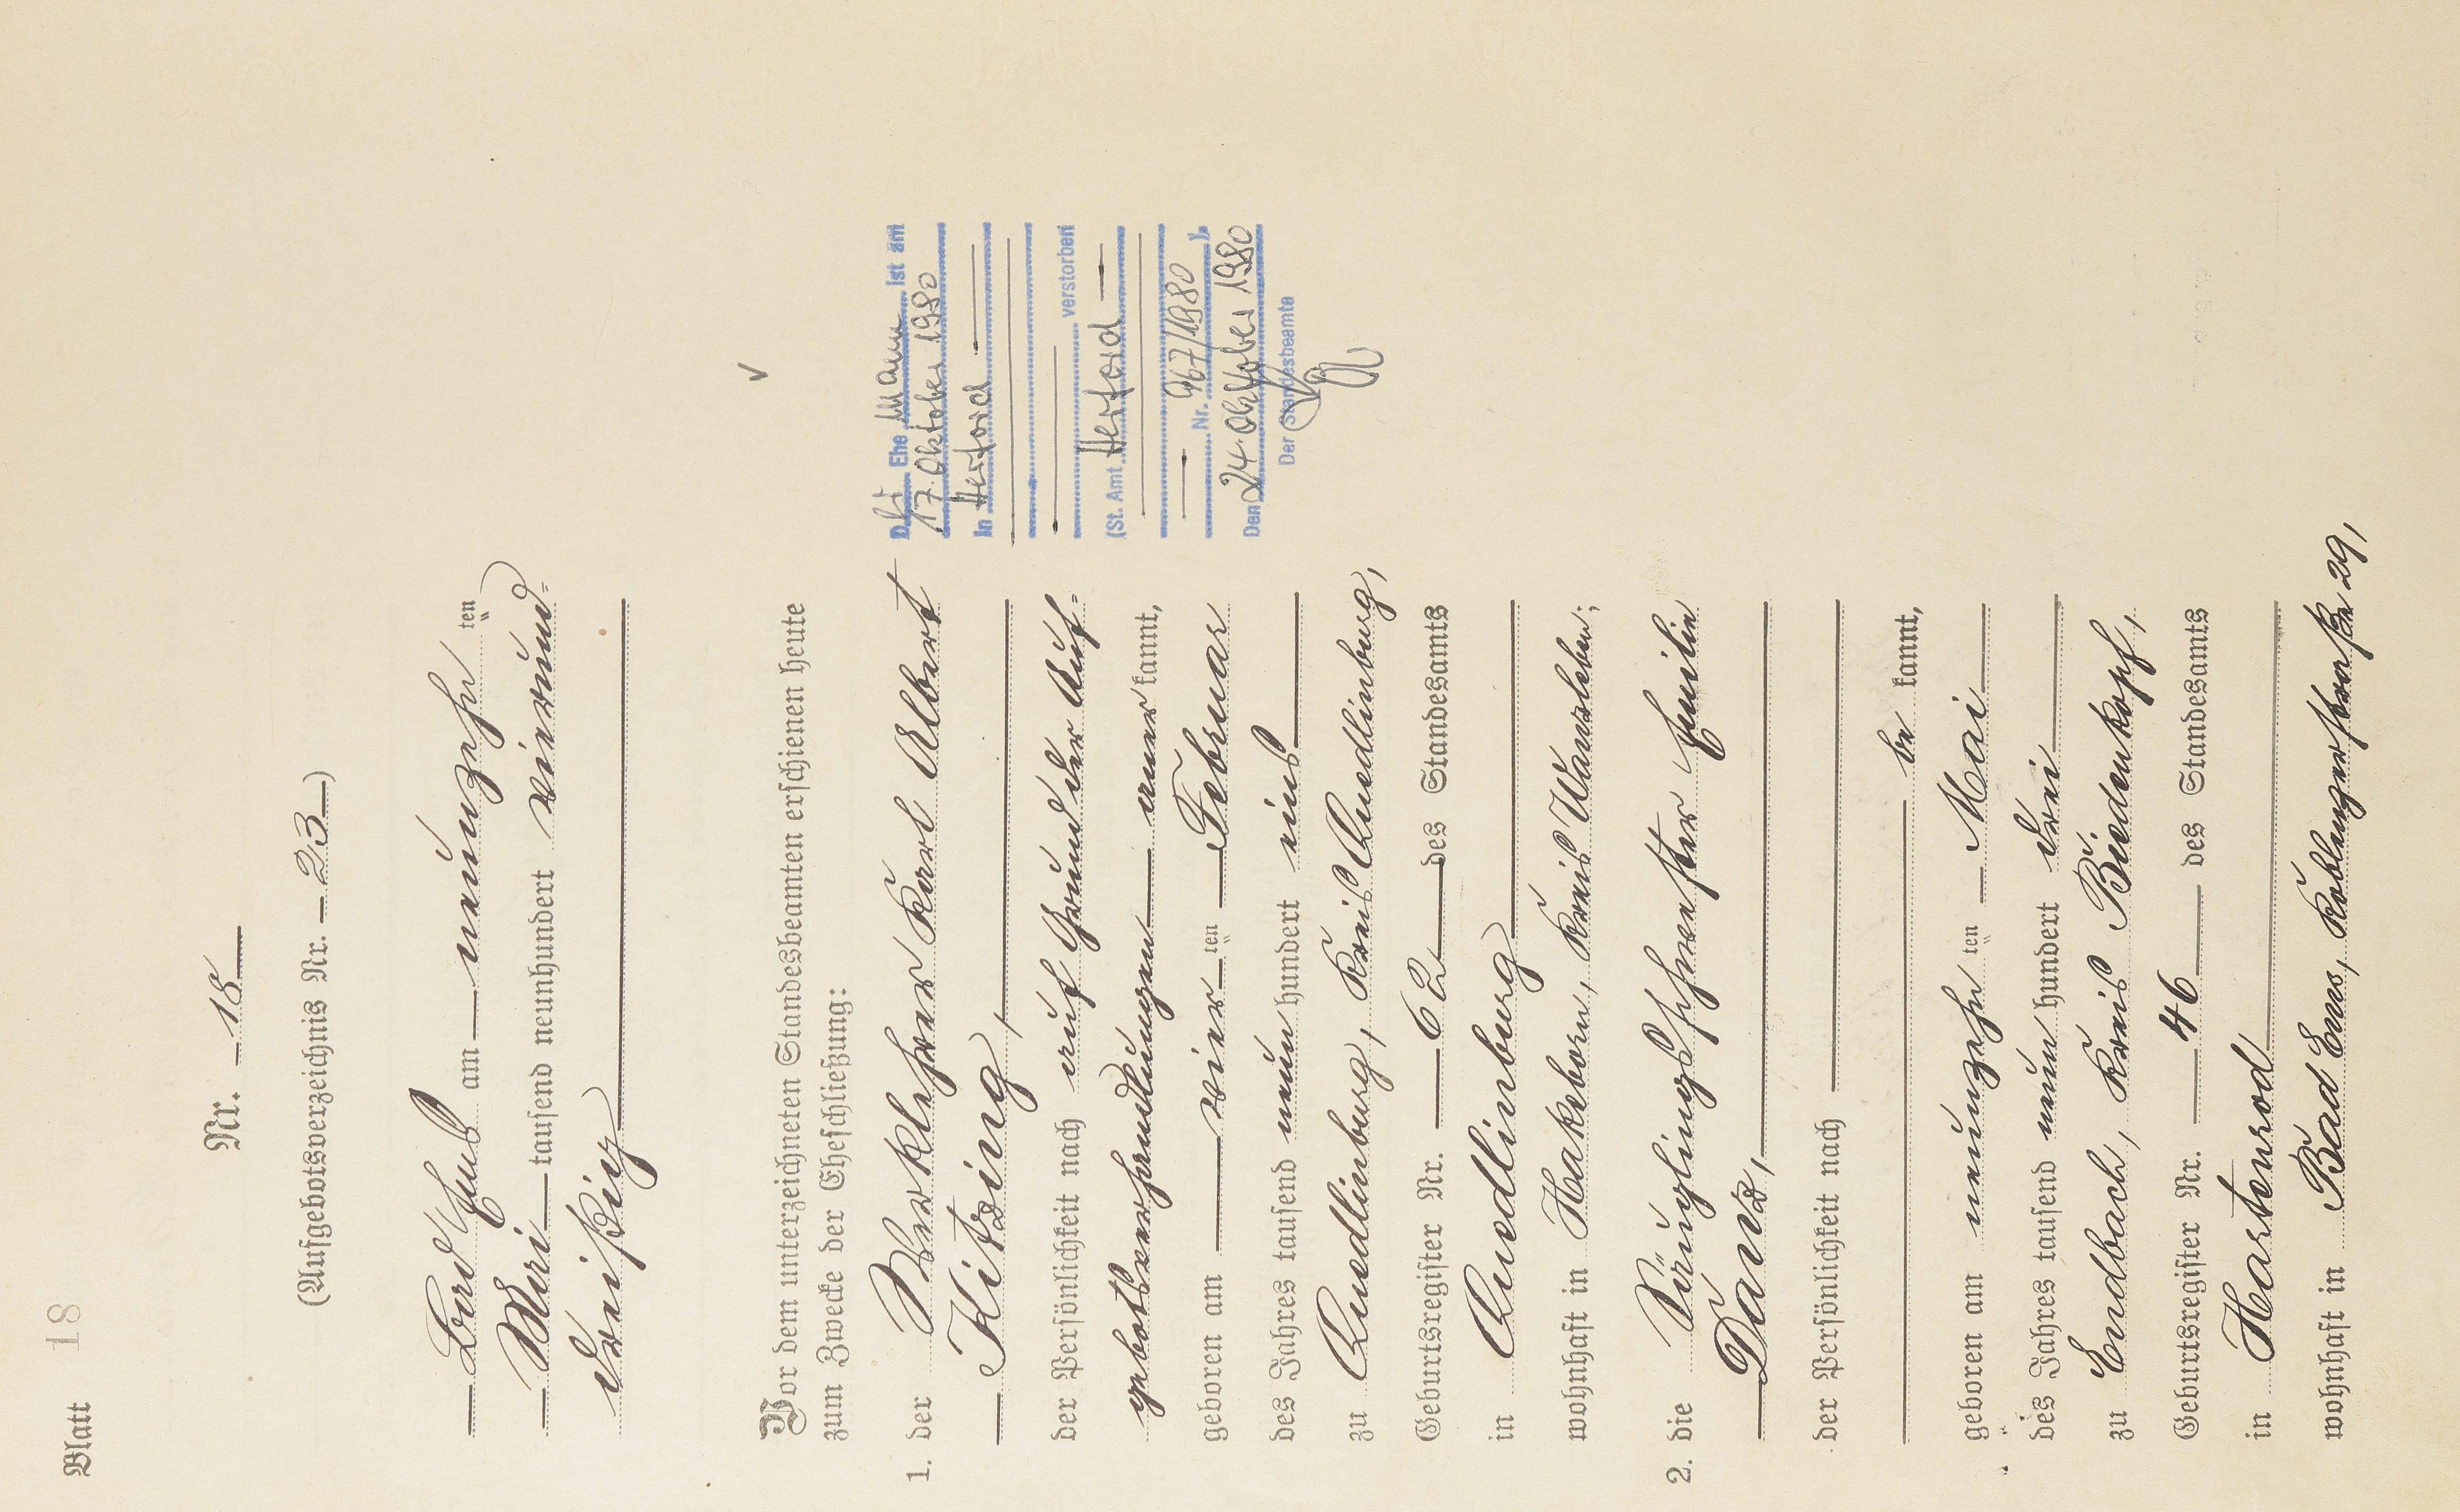 Blatt 18
Nr. 18
(Aufgebotsverzeichnis Nr. 23)
Bad Ems am neunzehn ten
Mai tausend neunhundert vierund-
dreißig
Vor dem unterzeichneten Standesbeamten erschienen heute
zum Zwecke der Eheschließung:
1. der Werklehrer Karl Albert
Kitzing,
der Persönlichkeit nach auf Grund der Auf-
gebotsverhandlungen aner kannt,
geboren am vier ten Februar
des Jahres tausend neun hundert eins
zu Quedlinburg, Kreis Quedlinburg,
Geburtsregister Nr. 62 des Standesamts
in Quedlinburg
wohnhaft in Hakeborn, Kreis Wanzleben;
2. die Säuglingsschwester Emilie
DäVz,
der Persönlichkeit nach
be kannt,
geboren am neunzehn ten Mai
des Jahres tausend neun hundert drei
zu Endbach, Kreis Biedenkopf,
Geburtsregister Nr. 46 des Standesamts
in Hartenrod
wohnhaft in Bad Ems, Koblenzerstraße 29,
Der Ehe Mann ist am
17. Oktober 1980
in Herford
verstorben
(St. Amt Herford
Nr. 967/1980 ).
Den 24. Oktober 1980
Der Standesbeamte